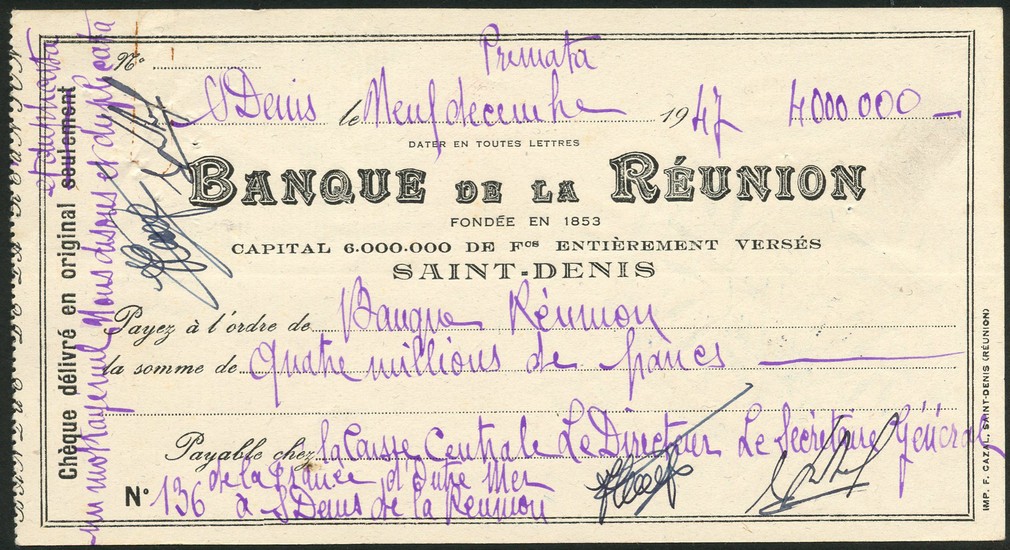 Primata
N°
St Denis le Neuf decembre 1947 4000.000 —
DATER EN TOUTES LETTRES
BANQUE DE LA RÉUNION
FONDÉE EN 1853
CAPITAL 6.000.000 DE Fcs ENTIÈREMENT VERSÉS
SAINT-DENIS
Payez à l'ordre de Banque Réunion
la somme de quatre millions de francs
Payable chez la Caisse Centrale Le Directeur Le Secrétaire Général
de la France d'Outre Mer
N° 136 à St Denis de la Réunion
Chèque délivré en original seulement
et duplicata
un mot rayé nul Nous disons et duplicata
IMP. F. CAZAL, SAINT-DENIS (RÉUNION)